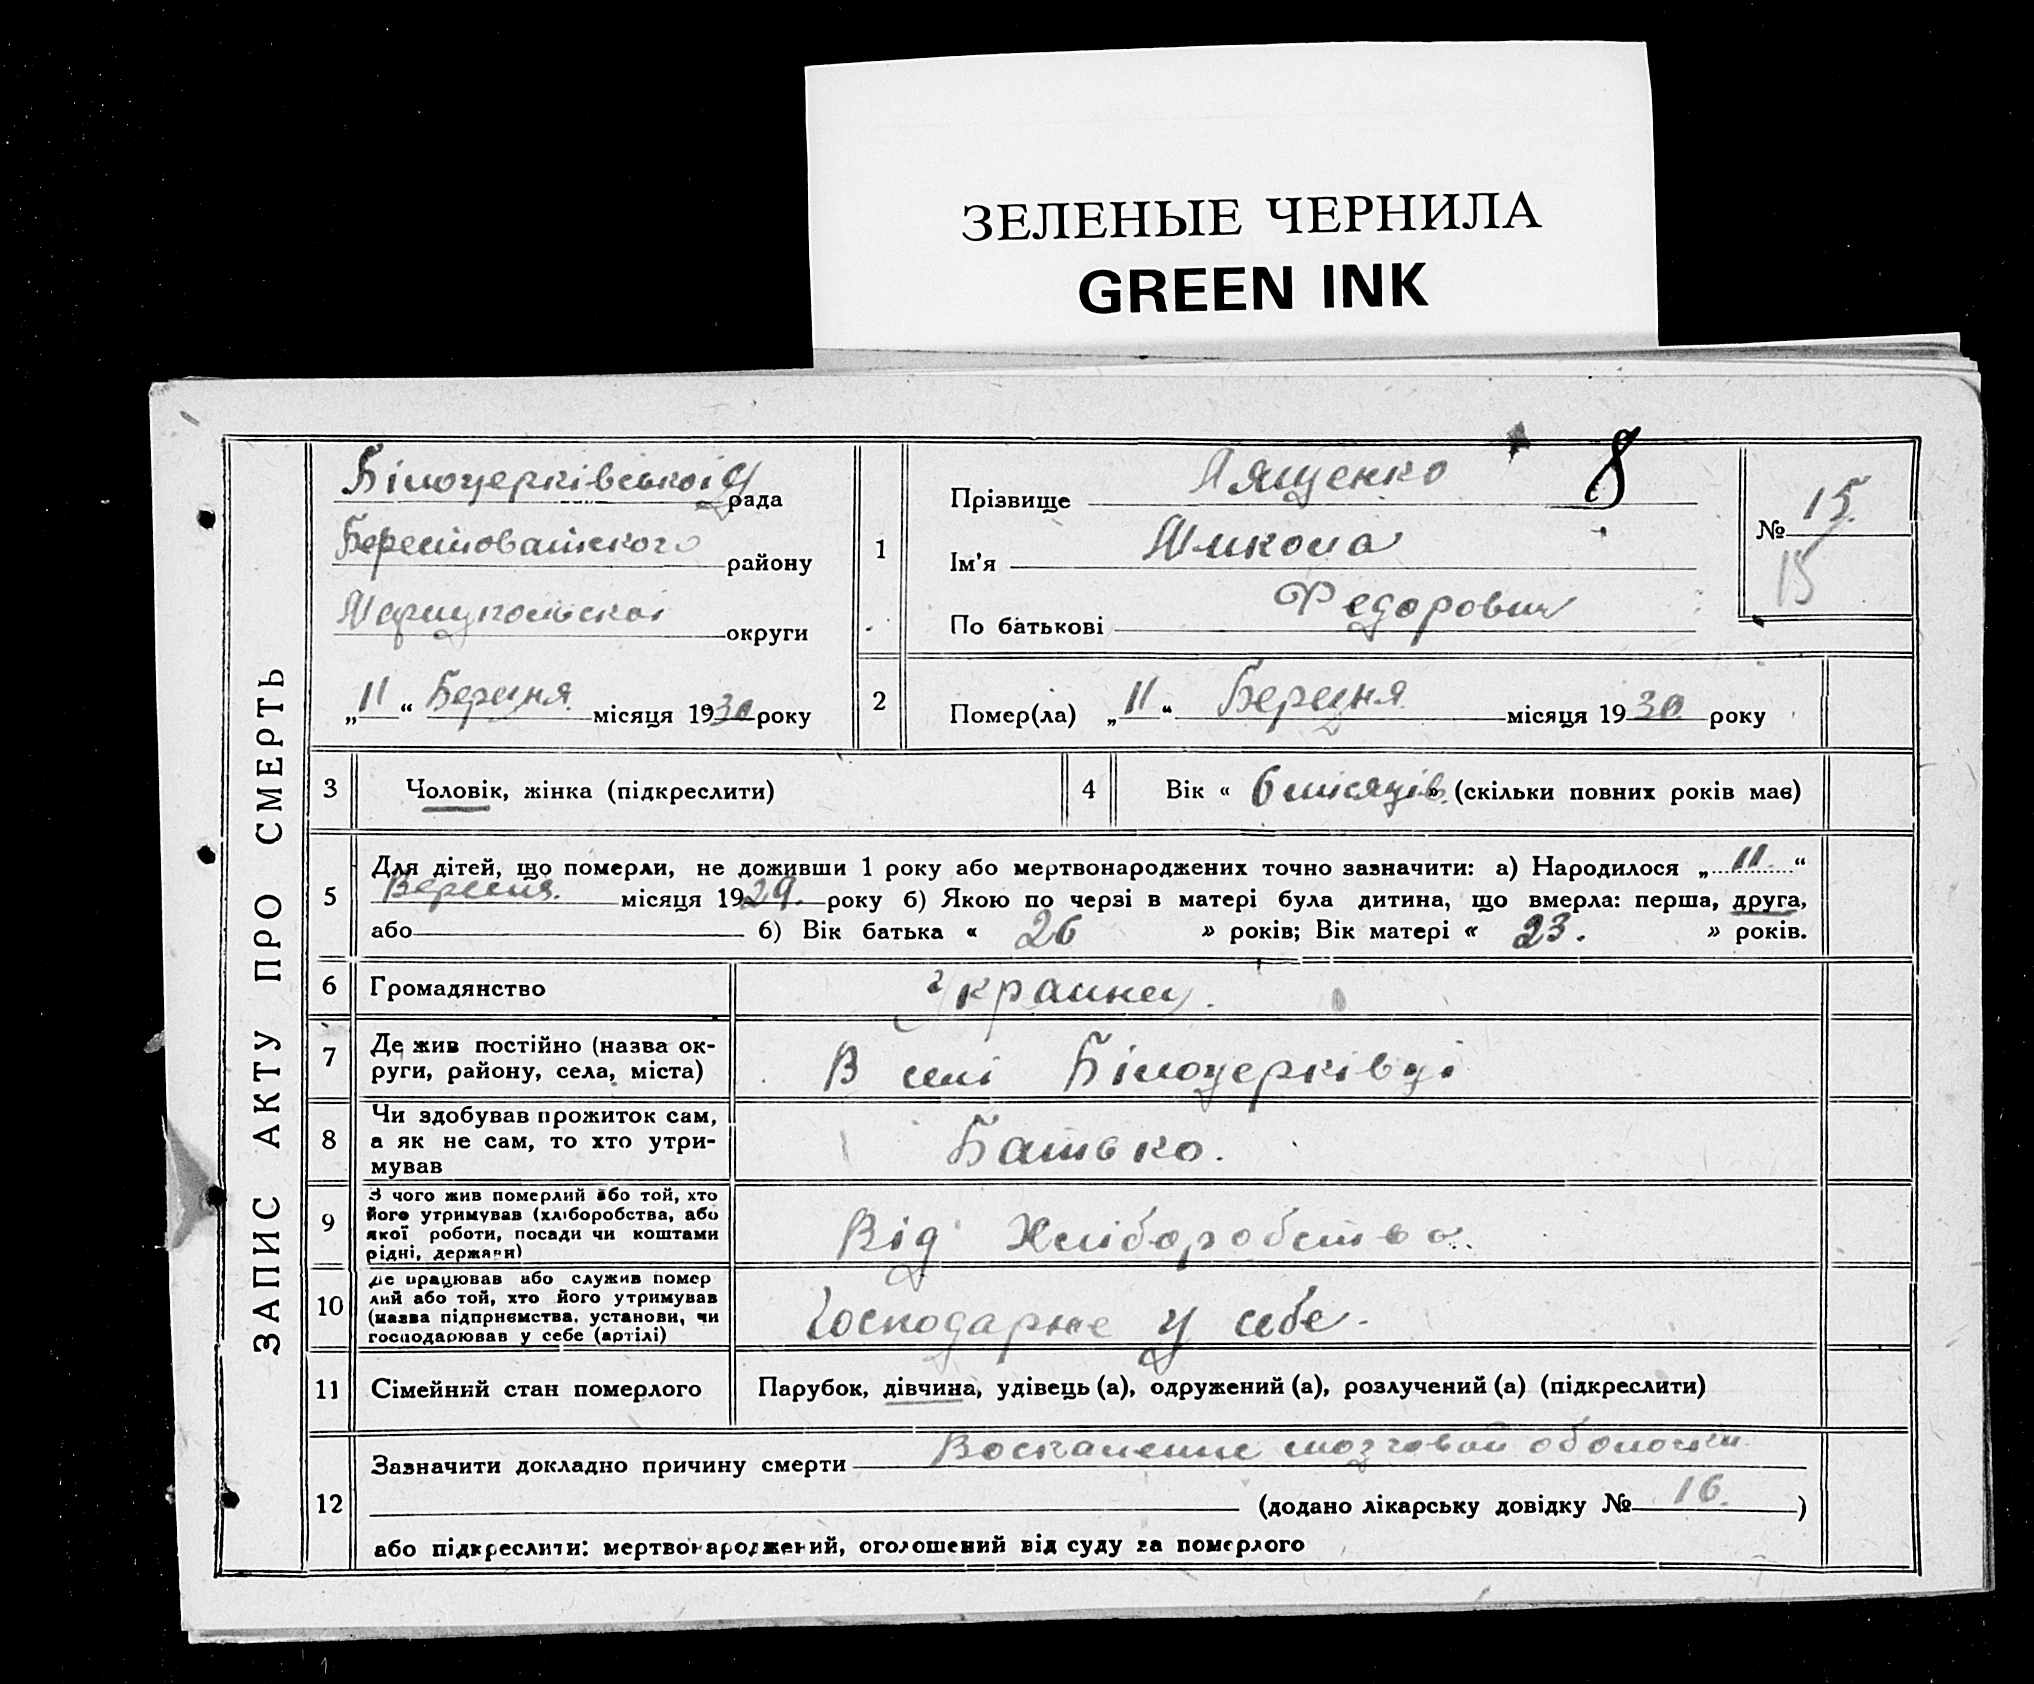 ЗЕЛЕНЫЕ ЧЕРНИЛА
GREEN INK
ЗАПИС АКТУ ПРО СМЕРТЬ
Білоцерківської рада
Берестоватского району
Мариупольскої округи
„11“ Березня місяця 1930 року
1
Прізвище Лященко 8
Ім'я Микола
По батькові Федорович
№ 15.
15
2
Помер(ла) „11“ Березня місяця 1930 року
3 Чоловік, жінка (підкреслити)
4 Вік « 6 місяців » (скільки повних років має)
5 Для дітей, що померли, не доживши 1 року або мертвонароджених точно зазначити: а) Народилося „11.“
Вересня. місяця 1929. року б) Якою по черзі в матері була дитина, що вмерла: перша, друга,
або б) Вік батька « 26 » років; Вік матері « 23. » років.
6 Громадянство
7 Де жив постійно (назва ок-
руги, району, села, міста)
В селі Білоцерківці
8 Чи здобував прожиток сам,
а як не сам, то хто утри-
мував
Батько.
9 З чого жив померлий або той, хто
його утримував (хліборобства, або
якої роботи, посади чи коштами
рідні, держави)
Від Хліборобства.
10 Де працював або служив помер
лий або той, хто його утримував
(назва підприємства, установи, чи
господарював у себе (артілі)
Господарює у себе.
11 Сімейний стан померлого Парубок, дівчина, удівець (а), одружений (а), розлучений (а) (підкреслити)
12 Зазначити докладно причину смерти Воспаление мозговой оболочки
(додано лікарську довідку № 16.)
або підкреслити: мертвонароджений, оголошений від суду за померлого